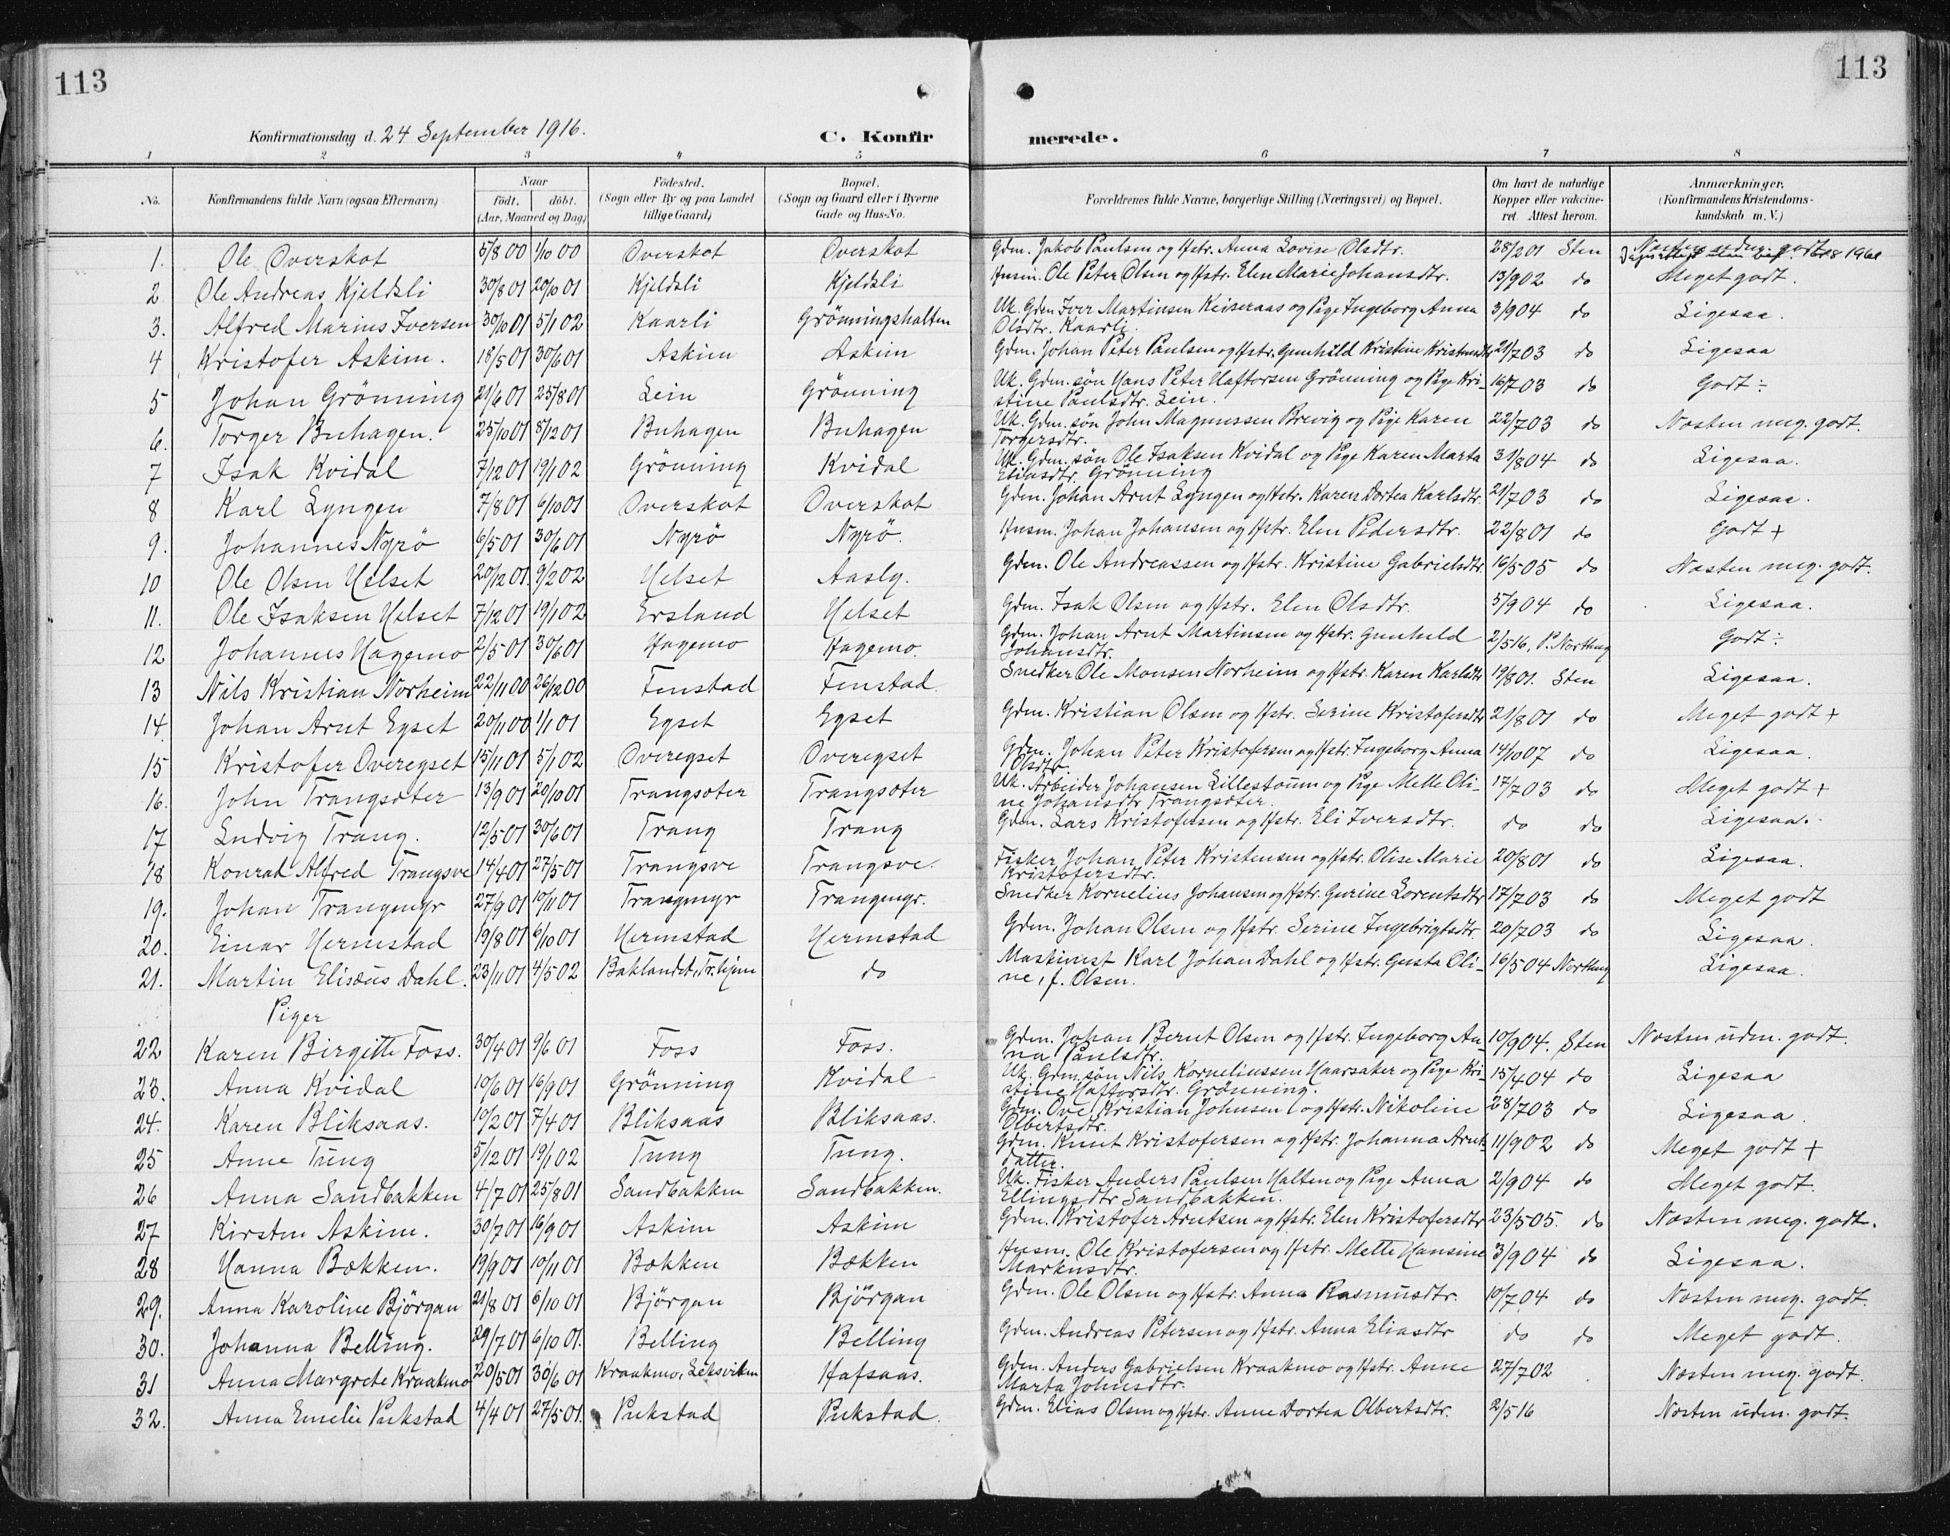 113
113
Konfirmationsdag d. 24 September 1916.
C. Konfirmerede.
1 2 3 4 5 6 7 8
No. Konfirmandens fulde Navn (ogsaa Efternavn) Naar født. døbt. (Aar, Maaned og Dag) Fødested. (Sogn eller By og paa Landet tillige Gaard) Bopæl. (Sogn og Gaard eller i Byerne Gade og Hus-No. Forældrenes fulde Navne, borgerlige Stilling (Næringsvei) og Bopæl. Om havt de naturlige Kopper eller vakcineret. Attest herom. Anmærkninger. (Konfirmandens Kristendomskundskab m. V.)
1. Ole Overskot 5/8 00 1/10 00 Overskot Overskot Gdm. Jakob Paulsen og Hstr. Anna Lovise Olsdtr. 28/2 01 Sten Næsten udm. godt
2. Ole Andreas Kjeldsli 30/8 01 20/10 01 Kjeldsli Kjeldsli Husm. Ole Peter Olsen og Hstr. Elen Marie Johansdtr. 13/9 02 do Meget godt.
3. Alfred Marius Iversen 30/10 01 5/1 02 Kaarli Grönningshalten Uk. Gdm. Iver Martinsen Keiseraas og Pige Ingeborg Anna 3/9 04 do Ligesaa.
Olsdtr. Kaarli.
4 Kristofer Askim. 18/5 01 30/6 01 Askim Askim Gdm. Johan Peter Paulsen og Hstr. Gunhild Kristine Kristensdtr 21/7 03 do Ligesaa
5 Johan Grönning 21/6 01 25/8 01 Lein Grönning Uk. Gdm. søn Hans Peter Haftorsen Grönning og Pige Kri- 16/7 03 do Godt ÷
stine Paulsdtr. Lein.
6. Torger Buhagen. 25/10 01 8/12 01 Buhagen Buhagen Uk. Gdm. søn John Magnussen Brevig og Pige Karen 22/7 03 do Næsten meg. godt.
Torgersdtr.
7 Isak Kvidal 7/12 01 19/1 02 Grönning Kvidal Uk. Gdm. søn Ole Isaksen Kvidal og Pige Karen Marta 31/8 04 do Ligesaa.
Eliasdtr. Grönning
8 Karl Lyngen 7/8 01 6/10 01 Overskot Overskot Gdm. Johan Arnt Lyngen og Hstr. Karen Dortea Karlsdtr. 21/7 03 do Ligesaa.
9. Johannes Nyrö 6/5 01 30/6 01 Nyrö Nyrö. Husm. Johan Johansen og Hstr. Elen Pedersdtr. 22/8 01 do Godt +
10 Ole Olsen Helset 20/12 01 9/2 02 Helset Aasly. Gdm. Ole Andreassen og Hstr. Kristine Gabrielsdtr. 16/5 05 do Næsten meg. godt.
11. Ole Isaksen Helset 7/12 01 19/1 02 Ersland Helset Gdm. Isak Olsen og Hstr. Elen Olsdtr. 5/9 04 do Ligesaa.
12 Johannes Hagemo 2/5 01 30/6 01 Hagemo Hagemo. Gdm. Johan Arnt Martinsen og Hstr. Gunhild 2/5 16, P. Northug Godt ÷
Johansdtr.
13 Nils Kristian Norheim 22/11 00 26/12 00 Fenstad Fenstad. Snedker Ole Monsen Norheim og Hstr. Karen Karlsdtr 19/8 01. Sten Ligesaa.
14. Johan Arnt Egset 20/11 00 1/1 01 Egset Egset Gdm. Kristian Olsen og Hstr. Serine Kristofersdtr 21/8 01 do Meget godt +
15 Kristofer Overegset 15/11 01 5/1 02 Overegset Overegset Gdm. Johan Peter Kristofersen og Hstr. Ingeborg Anna 14/10 07 do Ligesaa.
Olsdtr
16. John Trangsæter 13/9 01 20/10 01 Trangsæter Trangsæter Uk. Arbeider Johansen Lillestöum og Pige Mette Oli- 17/7 03 do Meget godt +
ne Johansdtr Trangsæter.
17 Ludvig Trang. 12/5 01 30/6 01 Trang Trang Gdm. Lars Kristofersen og Hstr. Eli Iversdtr. do do Ligesaa.
18 Konrad Alfred Trangsve 14/4 01 27/5 01 Trangsve Trangsve. Fisker Johan Peter Kristensen og Hstr. Olise Marie 20/8 01 do Ligesaa.
Kristofersdtr.
19. Johan Trangmyr 27/9 01 10/11 01 Trangmyr Trangmyr. Snedker Kornelius Johansen og Hstr. Gurine Lorentsdtr 17/7 03 do Meget godt
20. Einar Hermstad 19/8 01 6/10 01 Hermstad Hermstad Gdm. Johan Olsen og Hstr. Serine Ingebrigtsdtr. 20/7 03 do Ligesaa.
21. Martin Elisæus Dahl. 23/11 01 4/5 02 Baklandet, Tr.hjem do Maskinist Karl Johan Dahl og Hstr. Gusta Oli- 16/5 04 Northug Ligesaa.
ne, f. Olsen.
Piger
22 Karen Birgitte Foss. 30/4 01 9/6 01 Foss Foss. Gdm. Johan Bernt Olsen og Hstr. Ingeborg An- 10/9 04. Sten Næsten udm. godt.
na Paulsdtr.
23. Anna Kvidal 10/6 01 16/9 01 Grönning Kvidal Uk. Gdm. søn Nils Korneliussen Haarsaker og Pige Kri- 15/4 04 do Ligesaa
stine Haftorsdtr. Grönning.
24. Karen Bliksaas. 10/2 01 7/4 01 Bliksaas Bliksaas. Gdm. Ove Kristian Johnsen og Hstr. Nikoline 28/7 03 do Ligesaa.
Olbertsdtr.
25 Anne Tung 5/12 01 19/1 02 Tung Tung. Gdm. Knut Kristofersen og Hstr. Johanna Arnts- 11/9 02 do Meget godt +
datter.
26 Anna Sandbakken 4/7 01 25/8 01 Sandbakken Sandbakken. Uk. Fisker Anders Paulsen Halten og Pige Anna 2/9 04 do Meget godt.
Ellingsdtr Sandbakken.
27 Kirsten Askim. 30/7 01 16/9 01 Askim Askim Gdm. Kristofer Arntsen og Hstr. Elen Kristofersdtr 23/5 05. do Næsten meg. godt.
28 Hanna Bækken. 19/9 01 10/11 01 Bækken Bækken Husm. Ole Kristofersen og Hstr. Mette Hansine 3/9 04 do Ligesaa.
Markusdtr.
29. Anna Karoline Björgan 21/8 01 6/10 01 Björgan Björgan Gdm. Ole Olsen og Hstr. Anna Rasmusdtr. 10/7 04 do Næsten meg. godt.
30. Johanna Belling. 29/7 01 6/10 01. Belling Belling Gdm. Andreas Petersen og Hstr. Anna Eliasdtr do do Meget godt.
31 Anna Margrete Kraakmo 20/5 01 30/6 01 Kraakmo, Leksviken Hafsaas. Gdm. Anders Gabrielsen Kraakmo og Hstr. Anne 27/7 02 Næsten meg. godt.
Marta Johnsdtr.
32. Anna Emelie Pukstad 4/4 01 27/5 01. Pukstad Pukstad. Gdm. Elias Olsen og Hstr. Anne Dortea Olbertsdtr. 2/5 16 Næsten udm. godt.